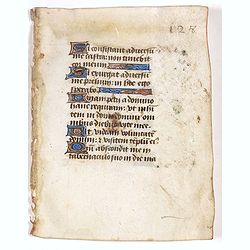 128
Si consistant adversu
me castra: non timebit
cor meum
Si exurgat adversu
me prelium: in hoc ego
sperabo
Unam petii a domino
hanc requiram: ut inha
tem in domo domini om
nibus diebus vite mee
Ut videam voluntate
domini: et visitem templu ei
Qm abscondit me in
tabernaculo suo in die ma